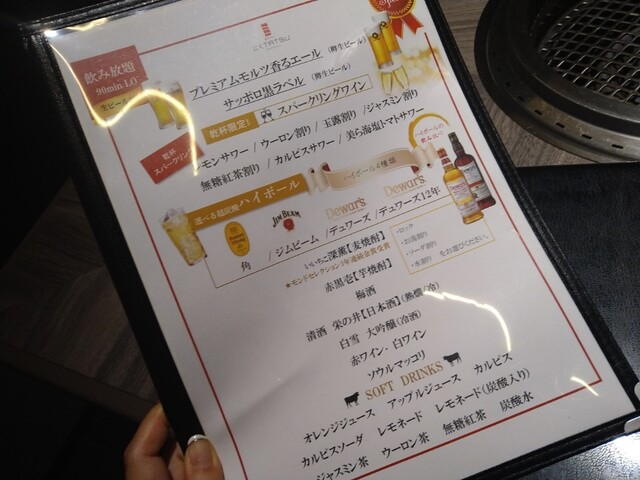 飲み放題
90min L.O
生ビール
プレミアムモルツ香るエール (樽生ビール)
サッポロ黒ラベル (樽生ビール)
乾杯限定! スパークリングワイン
乾杯
スパークリング
レモンサワー/ウーロン割り/玉露割り/ジャスミン割り
無糖紅茶割り/カルピスサワー/美ら海塩トマトサワー
選べる超炭酸ハイボール
ハイボール4種類
ハイボールの
飲み比べ
JIM BEAM
Dewar's
Dewar's
角 /ジムビーム/デュワーズ/デュワーズ12年
いいちこ深薫【麦焼酎】
★モンドセレクション3年連続金賞受賞
赤黒壱【芋焼酎】
・ロック
・お湯割り
・ソーダ割り
・水割り
をお選びください。
梅酒
清酒 栄の井【日本酒】(熱燗/冷)
白雪 大吟醸(冷酒)
赤ワイン、白ワイン
ソウルマッコリ
SOFT DRINKS
オレンジジュース アップルジュース カルピス
カルピスソーダ レモネード レモネード(炭酸入り)
ジャスミン茶 ウーロン茶 無糖紅茶 炭酸水